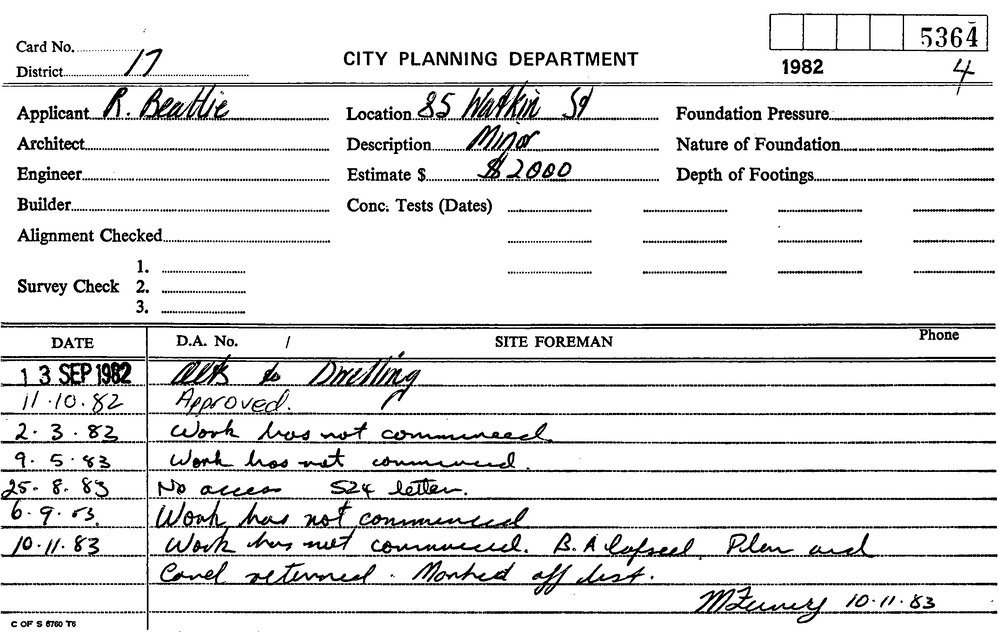 5364
Card No.
CITY PLANNING DEPARTMENT
1982
District 17
4
Applicant R. Beattie Location 85 Watkin St Foundation Pressure
Architect Description Minor Nature of Foundation
Engineer Estimate $ $2000 Depth of Footings
Builder Conc. Tests (Dates)
Alignment Checked
1.
Survey Check 2.
3.
DATE D.A. No. / SITE FOREMAN Phone
13 SEP 1982 Alts to Dwelling
11.10.82 Approved.
2.3.83 Work has not commenced
9.5.83 Work has not commenced.
25.8.83 No access S24 letter.
6.9.83. Work has not commenced
10.11.83 Work has not commenced. B.A lapsed. Plan and
Card returned. Marked off list.
10.11.83
C OF S 6760 T6